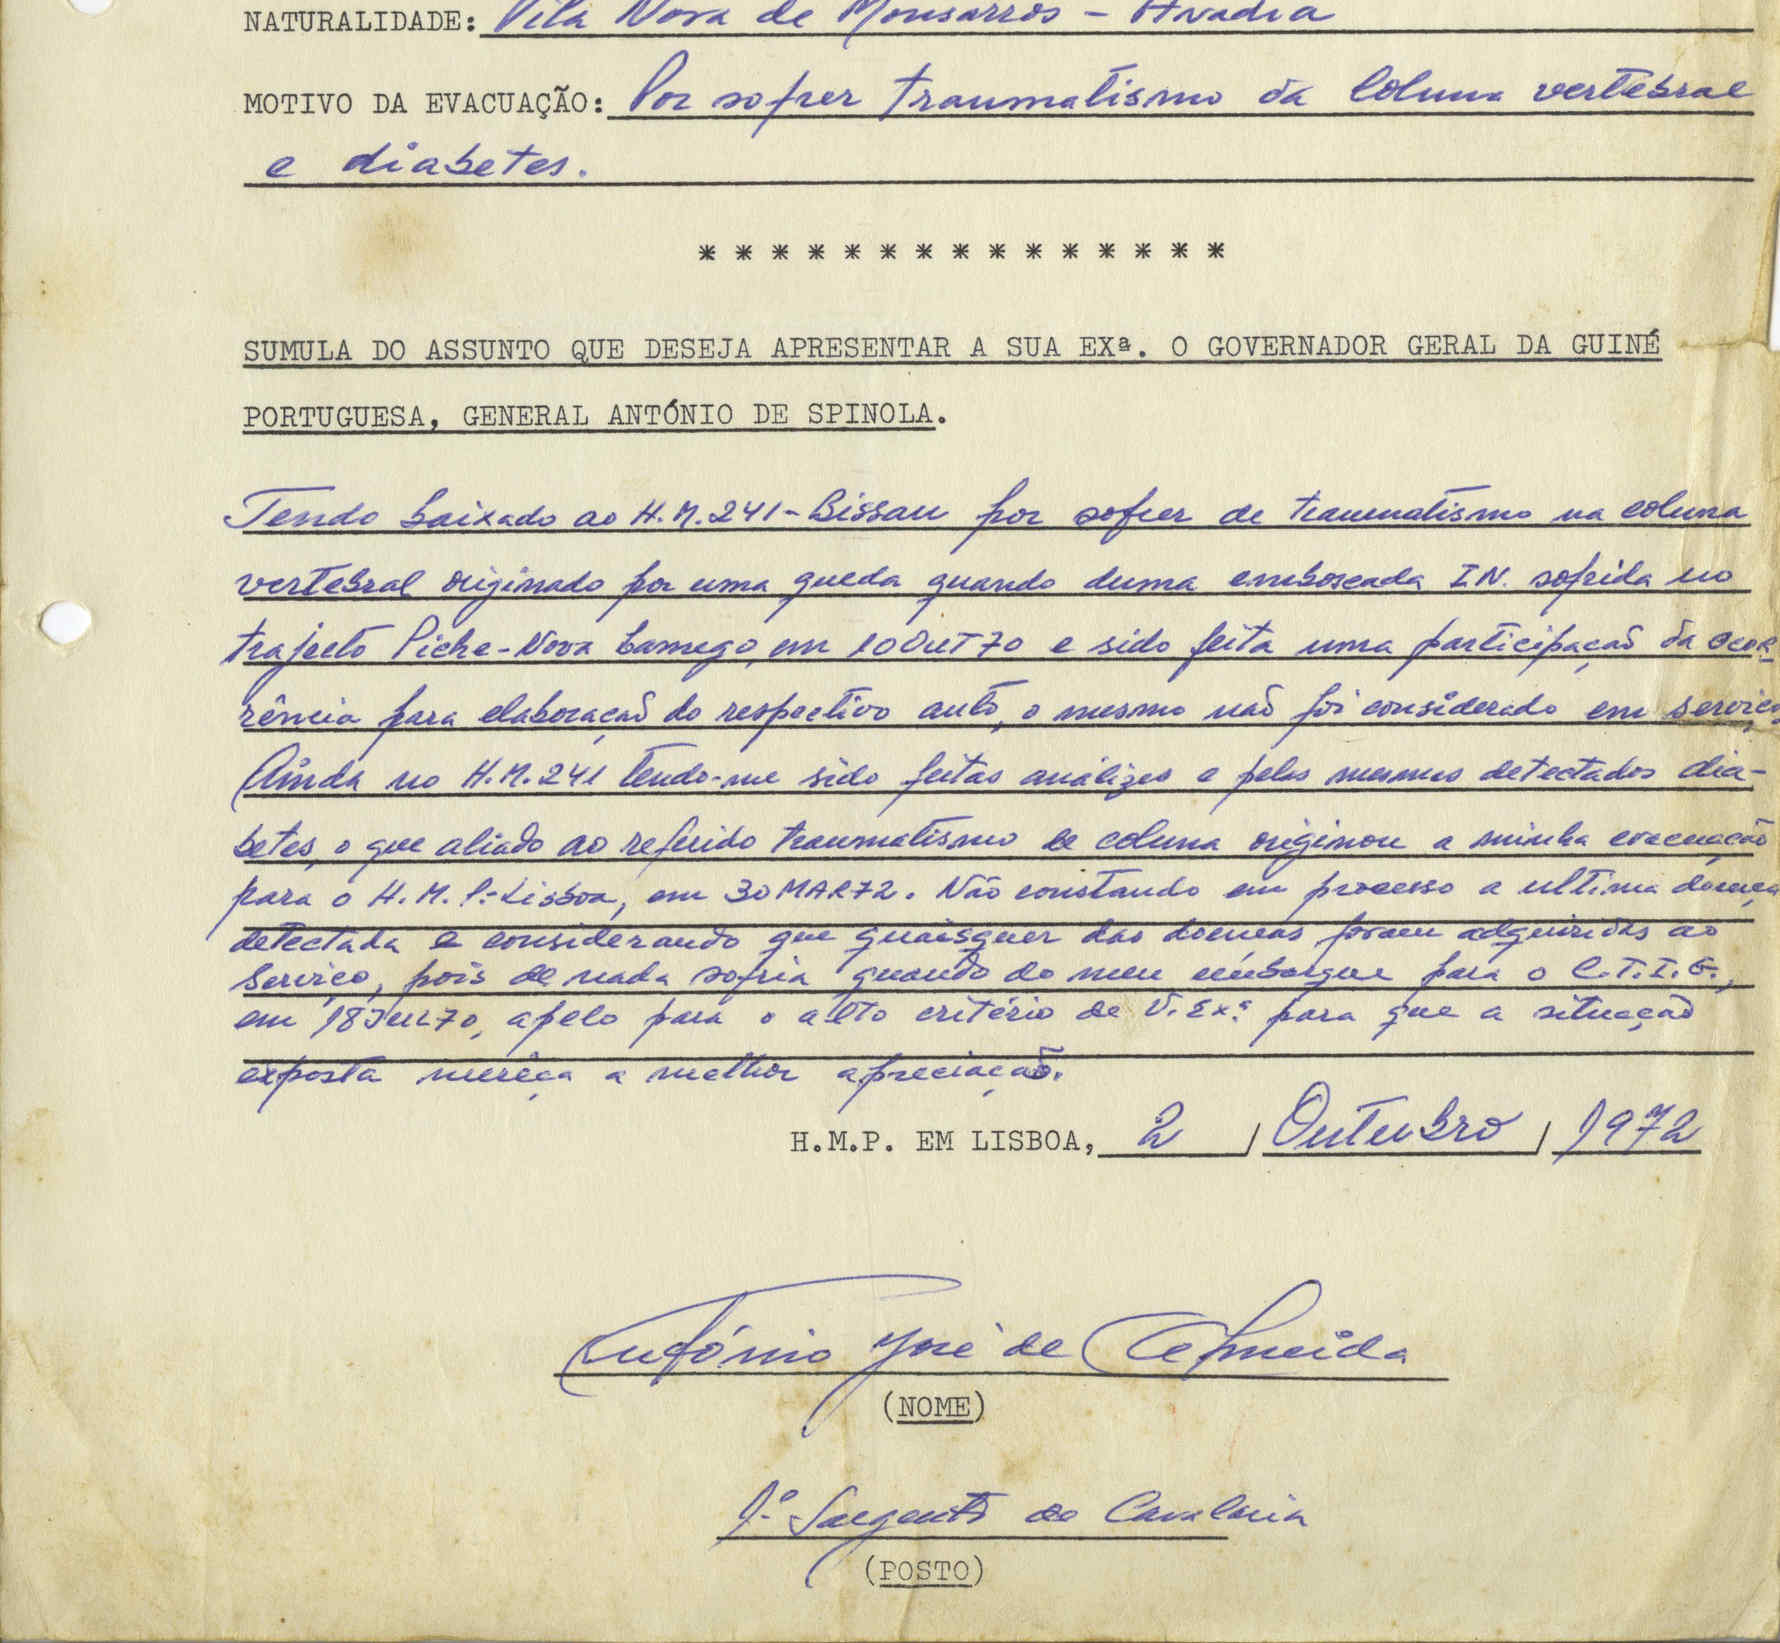 NATURALIDADE: Vila Nova de Monsarros - Anadia
MOTIVO DA EVACUAÇÃO: Por sofrer traumatismo da Coluna vertebral
e diabetes.
* * * * * * * * * * * * * * *
SUMULA DO ASSUNTO QUE DESEJA APRESENTAR A SUA EXª. O GOVERNADOR GERAL DA GUINÉ
PORTUGUESA, GENERAL ANTÓNIO DE SPINOLA.
Tendo baixado ao H.M.241-Bissau por sofrer de traumatismo na coluna
vertebral originado por uma queda quando duma emboscada IN. sofrida no
trajecto Piche-Nova Lamego, em 10OUT70 e sido feita uma participação da ocor-
rência para elaboração do respectivo auto, o mesmo não foi considerado em serviço.
Ainda no H.M.241 tendo-me sido feitas análizes e pelas mesmas detectados dia-
betes, o que aliado ao referido traumatismo de coluna originou a minha evacuação
para o H.M.P.-Lisboa, em 30MAR72. Não constando em processo a ultima doença
detectada e considerando que quaisquer das doenças foram adquiridas ao
serviço, pois de nada sofria quando do meu embarque para o C.T.I.G.,
em 18JUL70, apelo para o alto critério de V. Exª para que a situação
exposta mereça a melhor apreciação.
H.M.P. EM LISBOA, 2 / Outubro / 1972
António José de Almeida
(NOME)
1º Sargento de Cavalaria
(POSTO)